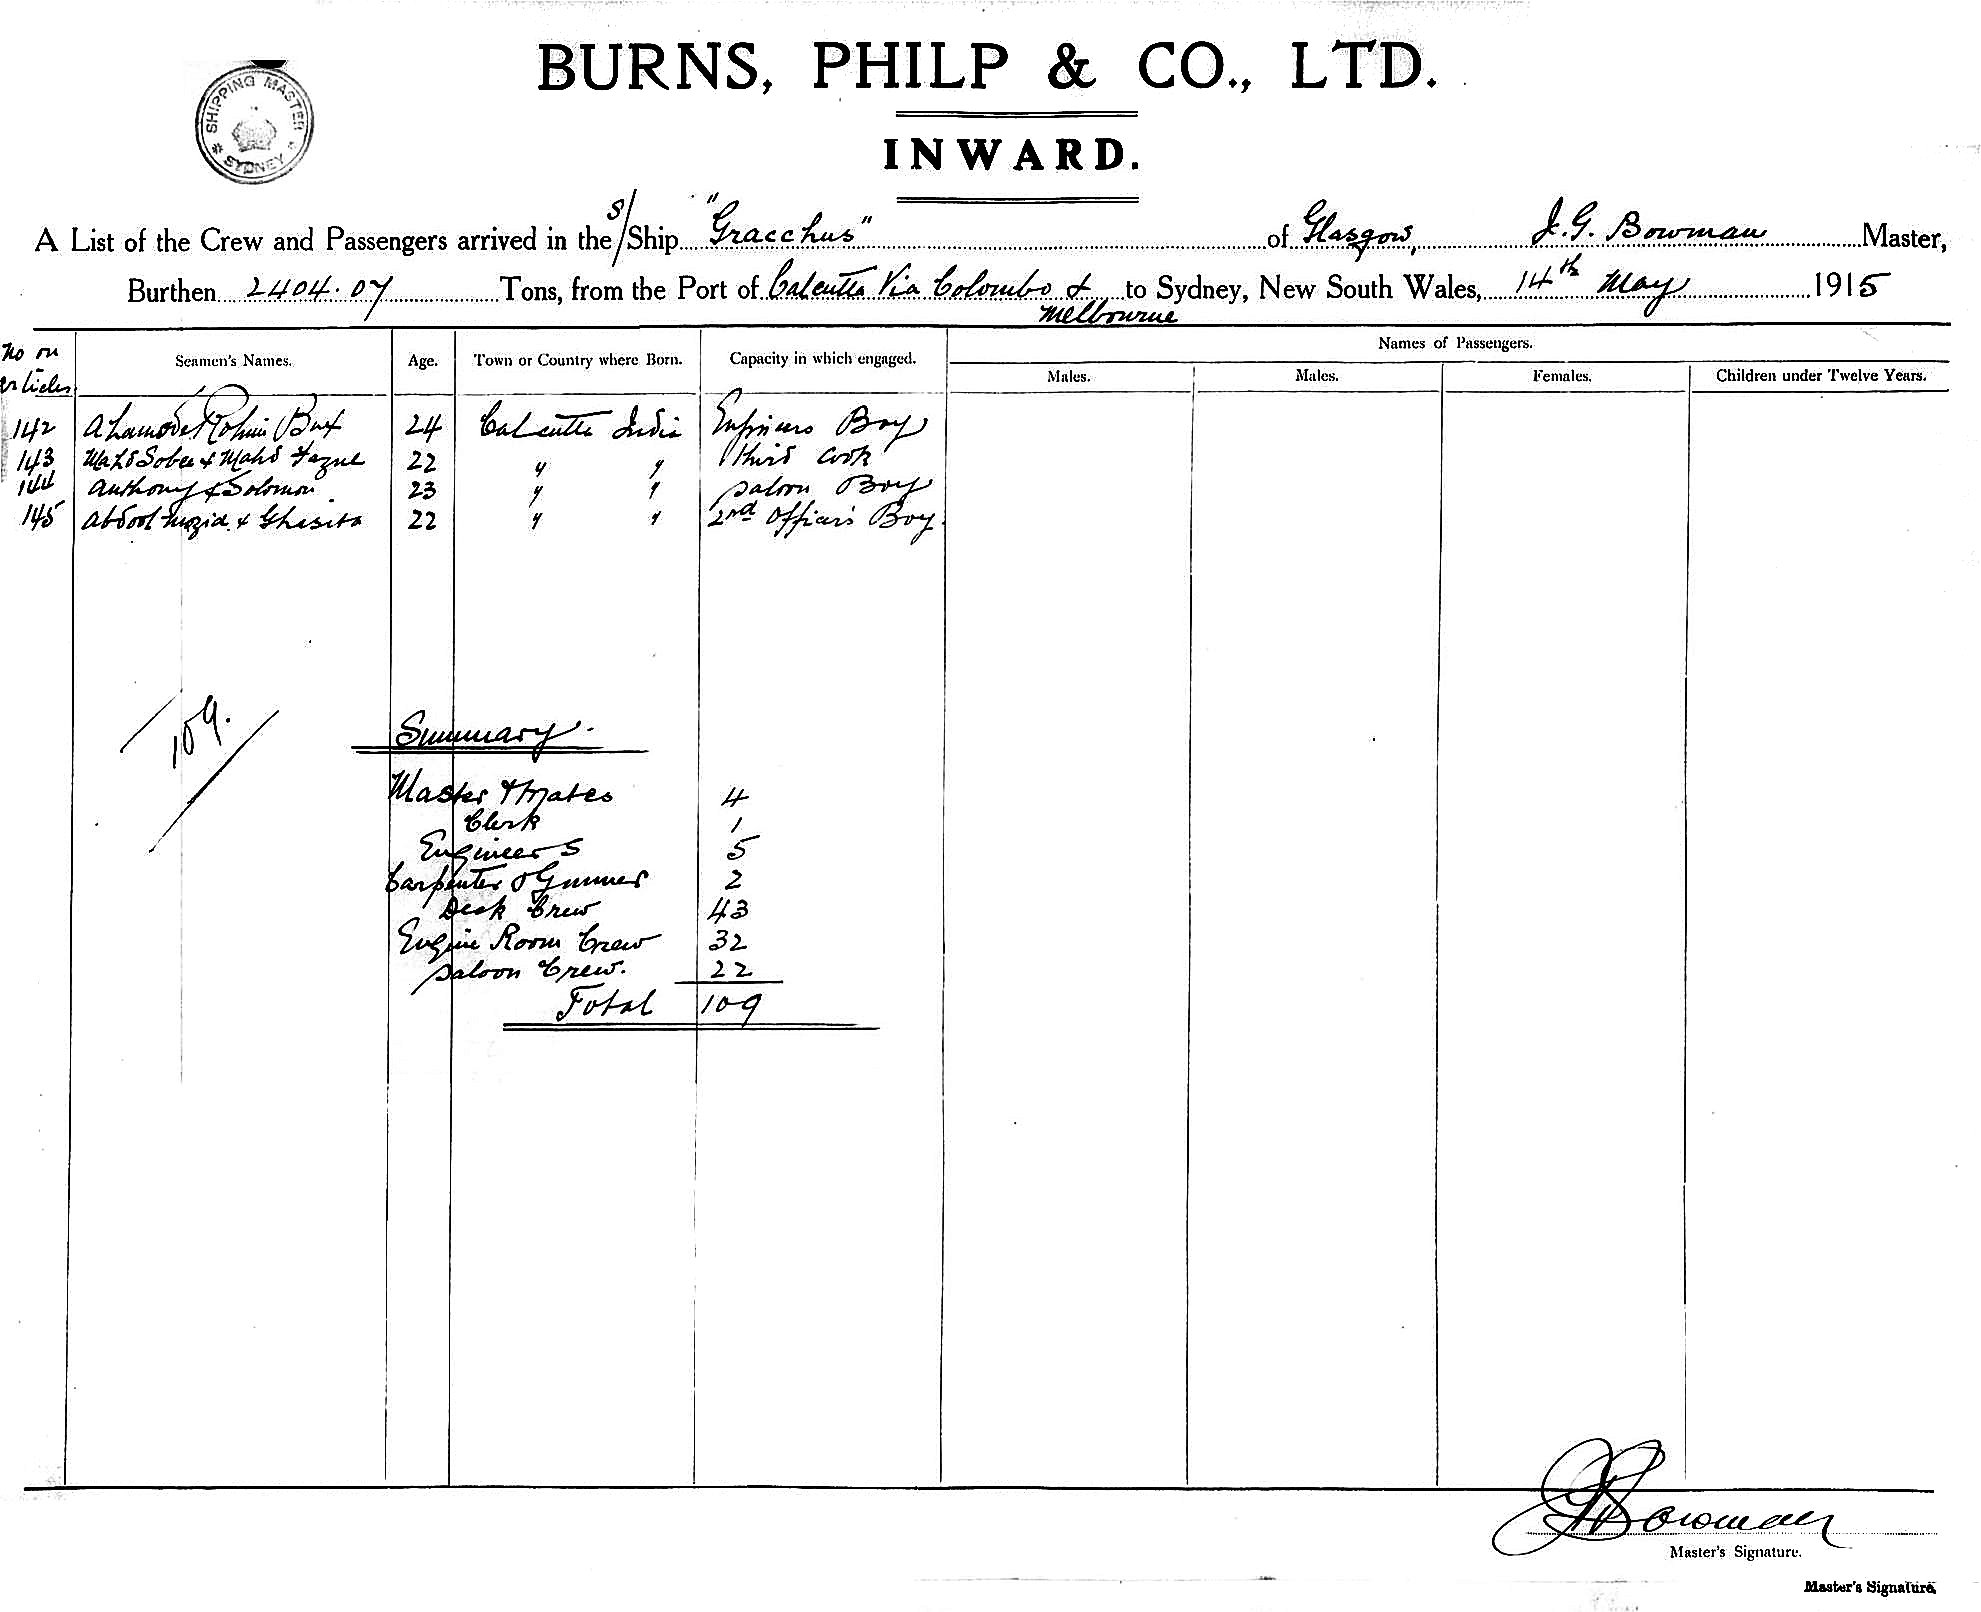 BURNS, PHILP & CO., LTD.
SHIPPING MASTER
SYDNEY
INWARD.
A List of the Crew and Passengers arrived in the S/Ship "Gracchus" of Glasgow, J. G. Bowman Master,
Burthen 2404.07 Tons, from the Port of Calcutta Via Colombo & Melbourne to Sydney, New South Wales, 14th May 1915
No on Articles Seamen's Names. Age. Town or Country where Born. Capacity in which engaged. Names of Passengers.
Males. Males. Females. Children under Twelve Years.
142 Rohim Bux 24 Calcutta India Engineers Boy
143 Mahd Sobee & Mahd Fazul 22 " " third Cook
144 Anthony & Solomon 23 " " Saloon Boy
145 Abdool & Ghasita 22 " " 2nd Officers Boy.
109.
Summary.
Master & Mates 4
Clerk 1
Engineers 5
Carpenter & Gunner 2
Deck Crew 43
Engine Room Crew 32
Saloon Crew. 22
Total 109
J G Bowman
Master's Signature.
Master's Signature.